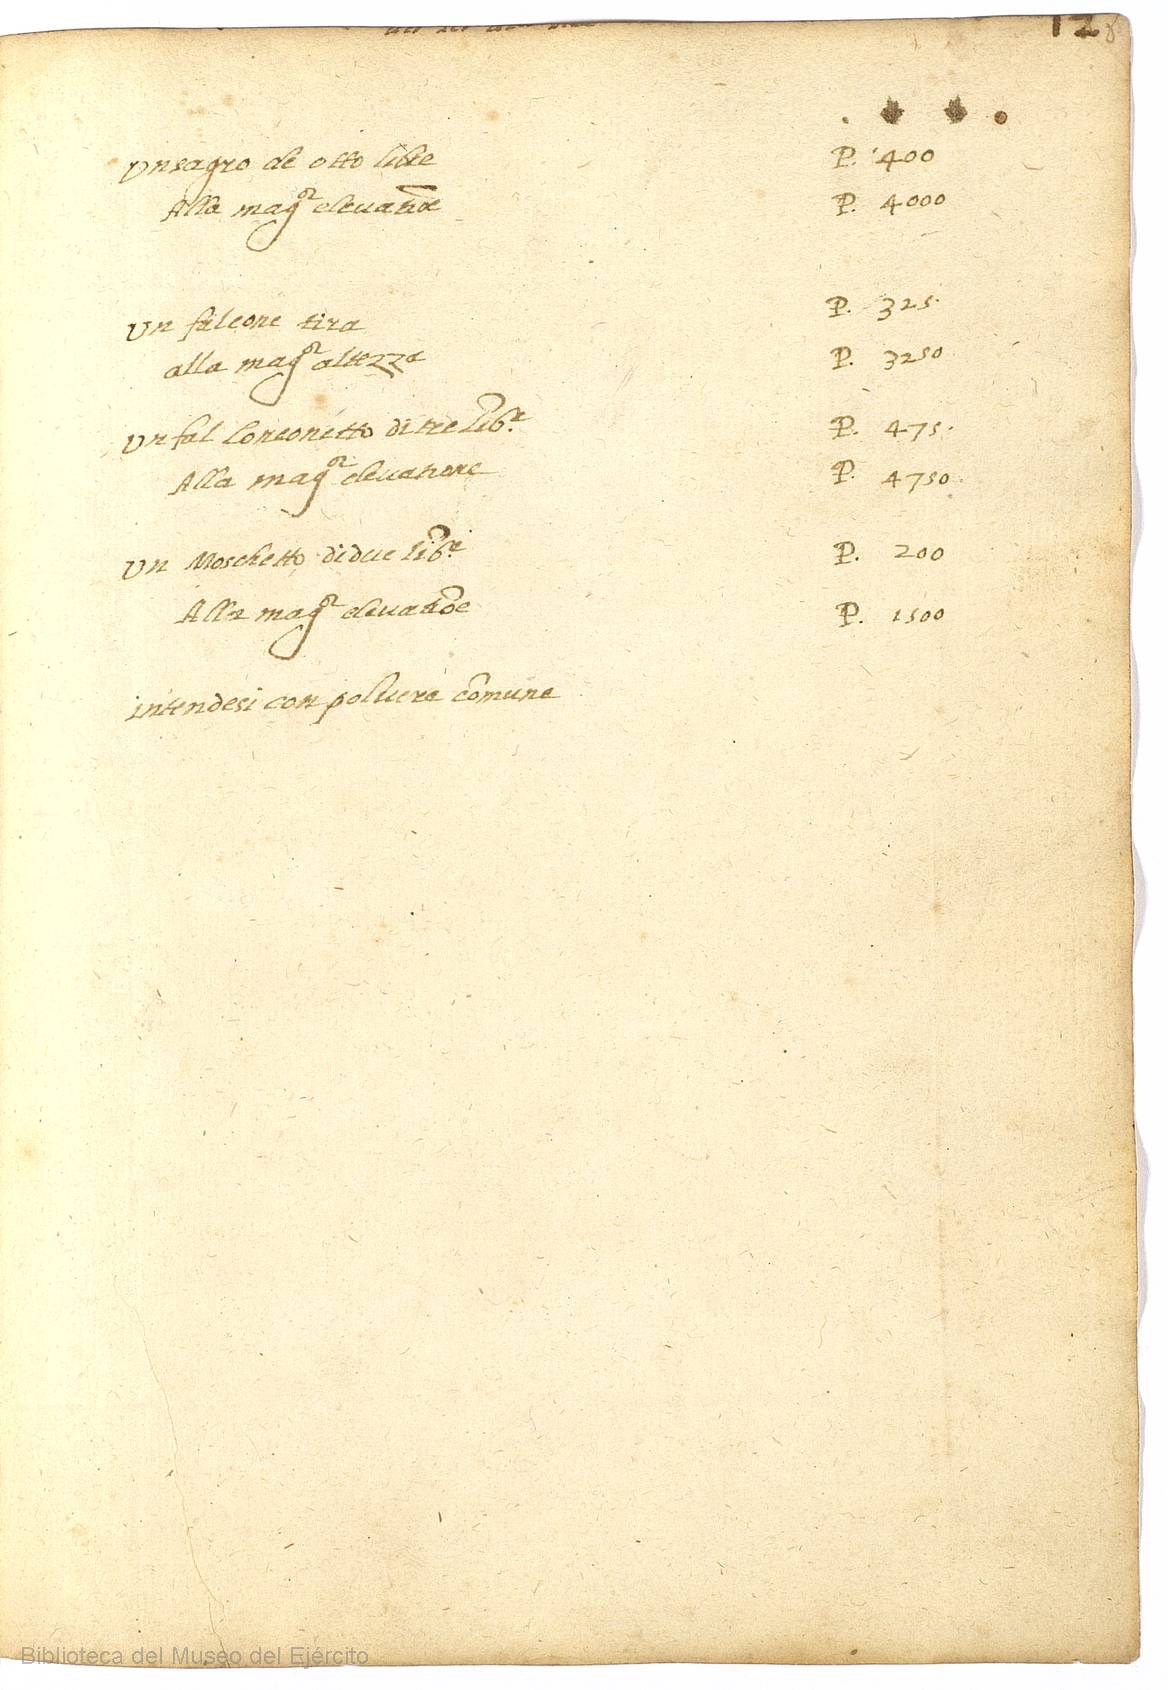 12
Un sagro de otto libre P. 400
Alla magr elevatiōe P. 4000
Un falcone tira P. 325.
alla magr altezza P. 3250
Un fal Conconetto di tre libre P. 475.
Alla magr elevatione P. 4750.
Un Moschetto di due libre P. 200
Alla magr elevatiōe P. 1500
intendesi con polvere cōmune
Biblioteca del Museo del Ejército